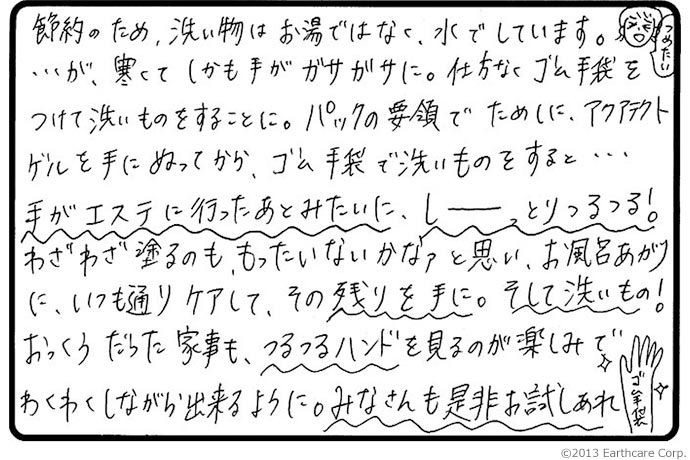 節約のため、洗い物はお湯ではなく、水でしています。
つめたい
・・・が、寒くてしかも手がガサガサに。仕方なくゴム手袋を
つけて洗いものをすることに。パックの要領でためしに、アクアテクト
ゲルを手にぬってから、ゴム手袋で洗いものをすると・・・
手がエステに行ったあとみたいに、しーーっとりつるつる！
わざわざ塗るのも、もったいないかなァと思い、お風呂あがり
に、いつも通りケアして、その残りを手に。そして洗いもの！
おっくうだった家事も、つるつるハンドを見るのが楽しみで
わくわくしながら出来るように。みなさんも是非お試しあれ
ゴム手袋
©2013 Earthcare Corp.